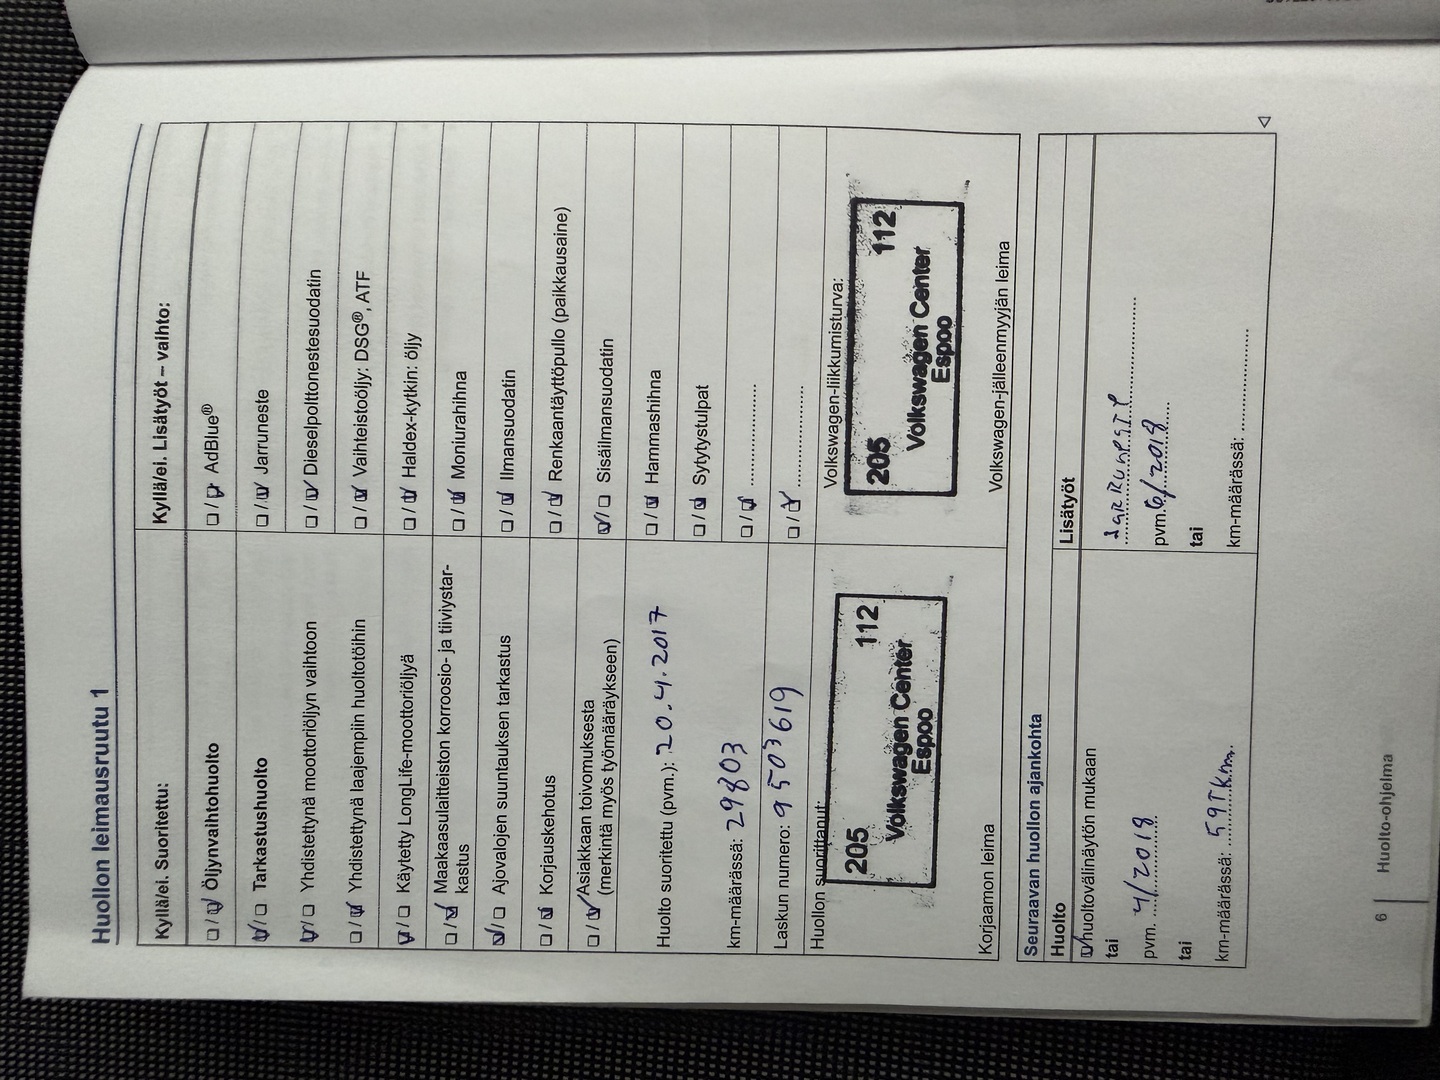 Huollon leimausruutu 1
Kyllä/ei. Suoritettu:
☐/☑ Öljynvaihtohuolto
☑/☐ Tarkastushuolto
☑/☐ Yhdistettynä moottoriöljyn vaihtoon
☐/☑ Yhdistettynä laajempiin huoltotöihin
☑/☐ Käytetty LongLife-moottoriöljyä
☐/☑ (Maakaasulaitteiston korroosio- ja tiiviystar-
kastus
☑/☐ Ajovalojen suuntauksen tarkastus
☐/☑ Korjauskehotus
☐/☑ Asiakkaan toivomuksesta
(merkintä myös työmääräykseen)
Huolto suoritettu (pvm.): 20.4.2017
km-määrässä: 29803
Laskun numero: 9503619
Huollon suorittanut:
205 112
Volkswagen Center
Espoo
Korjaamon leima
Kyllä/ei. Lisätyöt – vaihto:
☐/☑ AdBlue®
☐/☑ Jarruneste
☐/☑ Dieselpolttonestesuodatin
☐/☑ Vaihteistoöljy: DSG®, ATF
☐/☑ Haldex-kytkin: öljy
☐/☑ Moniurahihna
☐/☑ Ilmansuodatin
☐/☑ Renkaantäyttöpullo (paikkausaine)
☑/☐ Sisäilmansuodatin
☐/☑ Hammashihna
☐/☑ Sytytystulpat
☐/☑ ....................
☐/☑ ....................
Volkswagen-liikkumisturva:
205 112
Volkswagen Center
Espoo
Volkswagen-jälleenmyyjän leima
Seuraavan huollon ajankohta
Huolto
☑ huoltovälinäytön mukaan
tai
pvm. 4/2018
tai
km-määrässä: 59TKm.
Lisätyöt
JARRUNESTE
pvm. 6/2018
tai
km-määrässä: ....................
6
Huolto-ohjelma